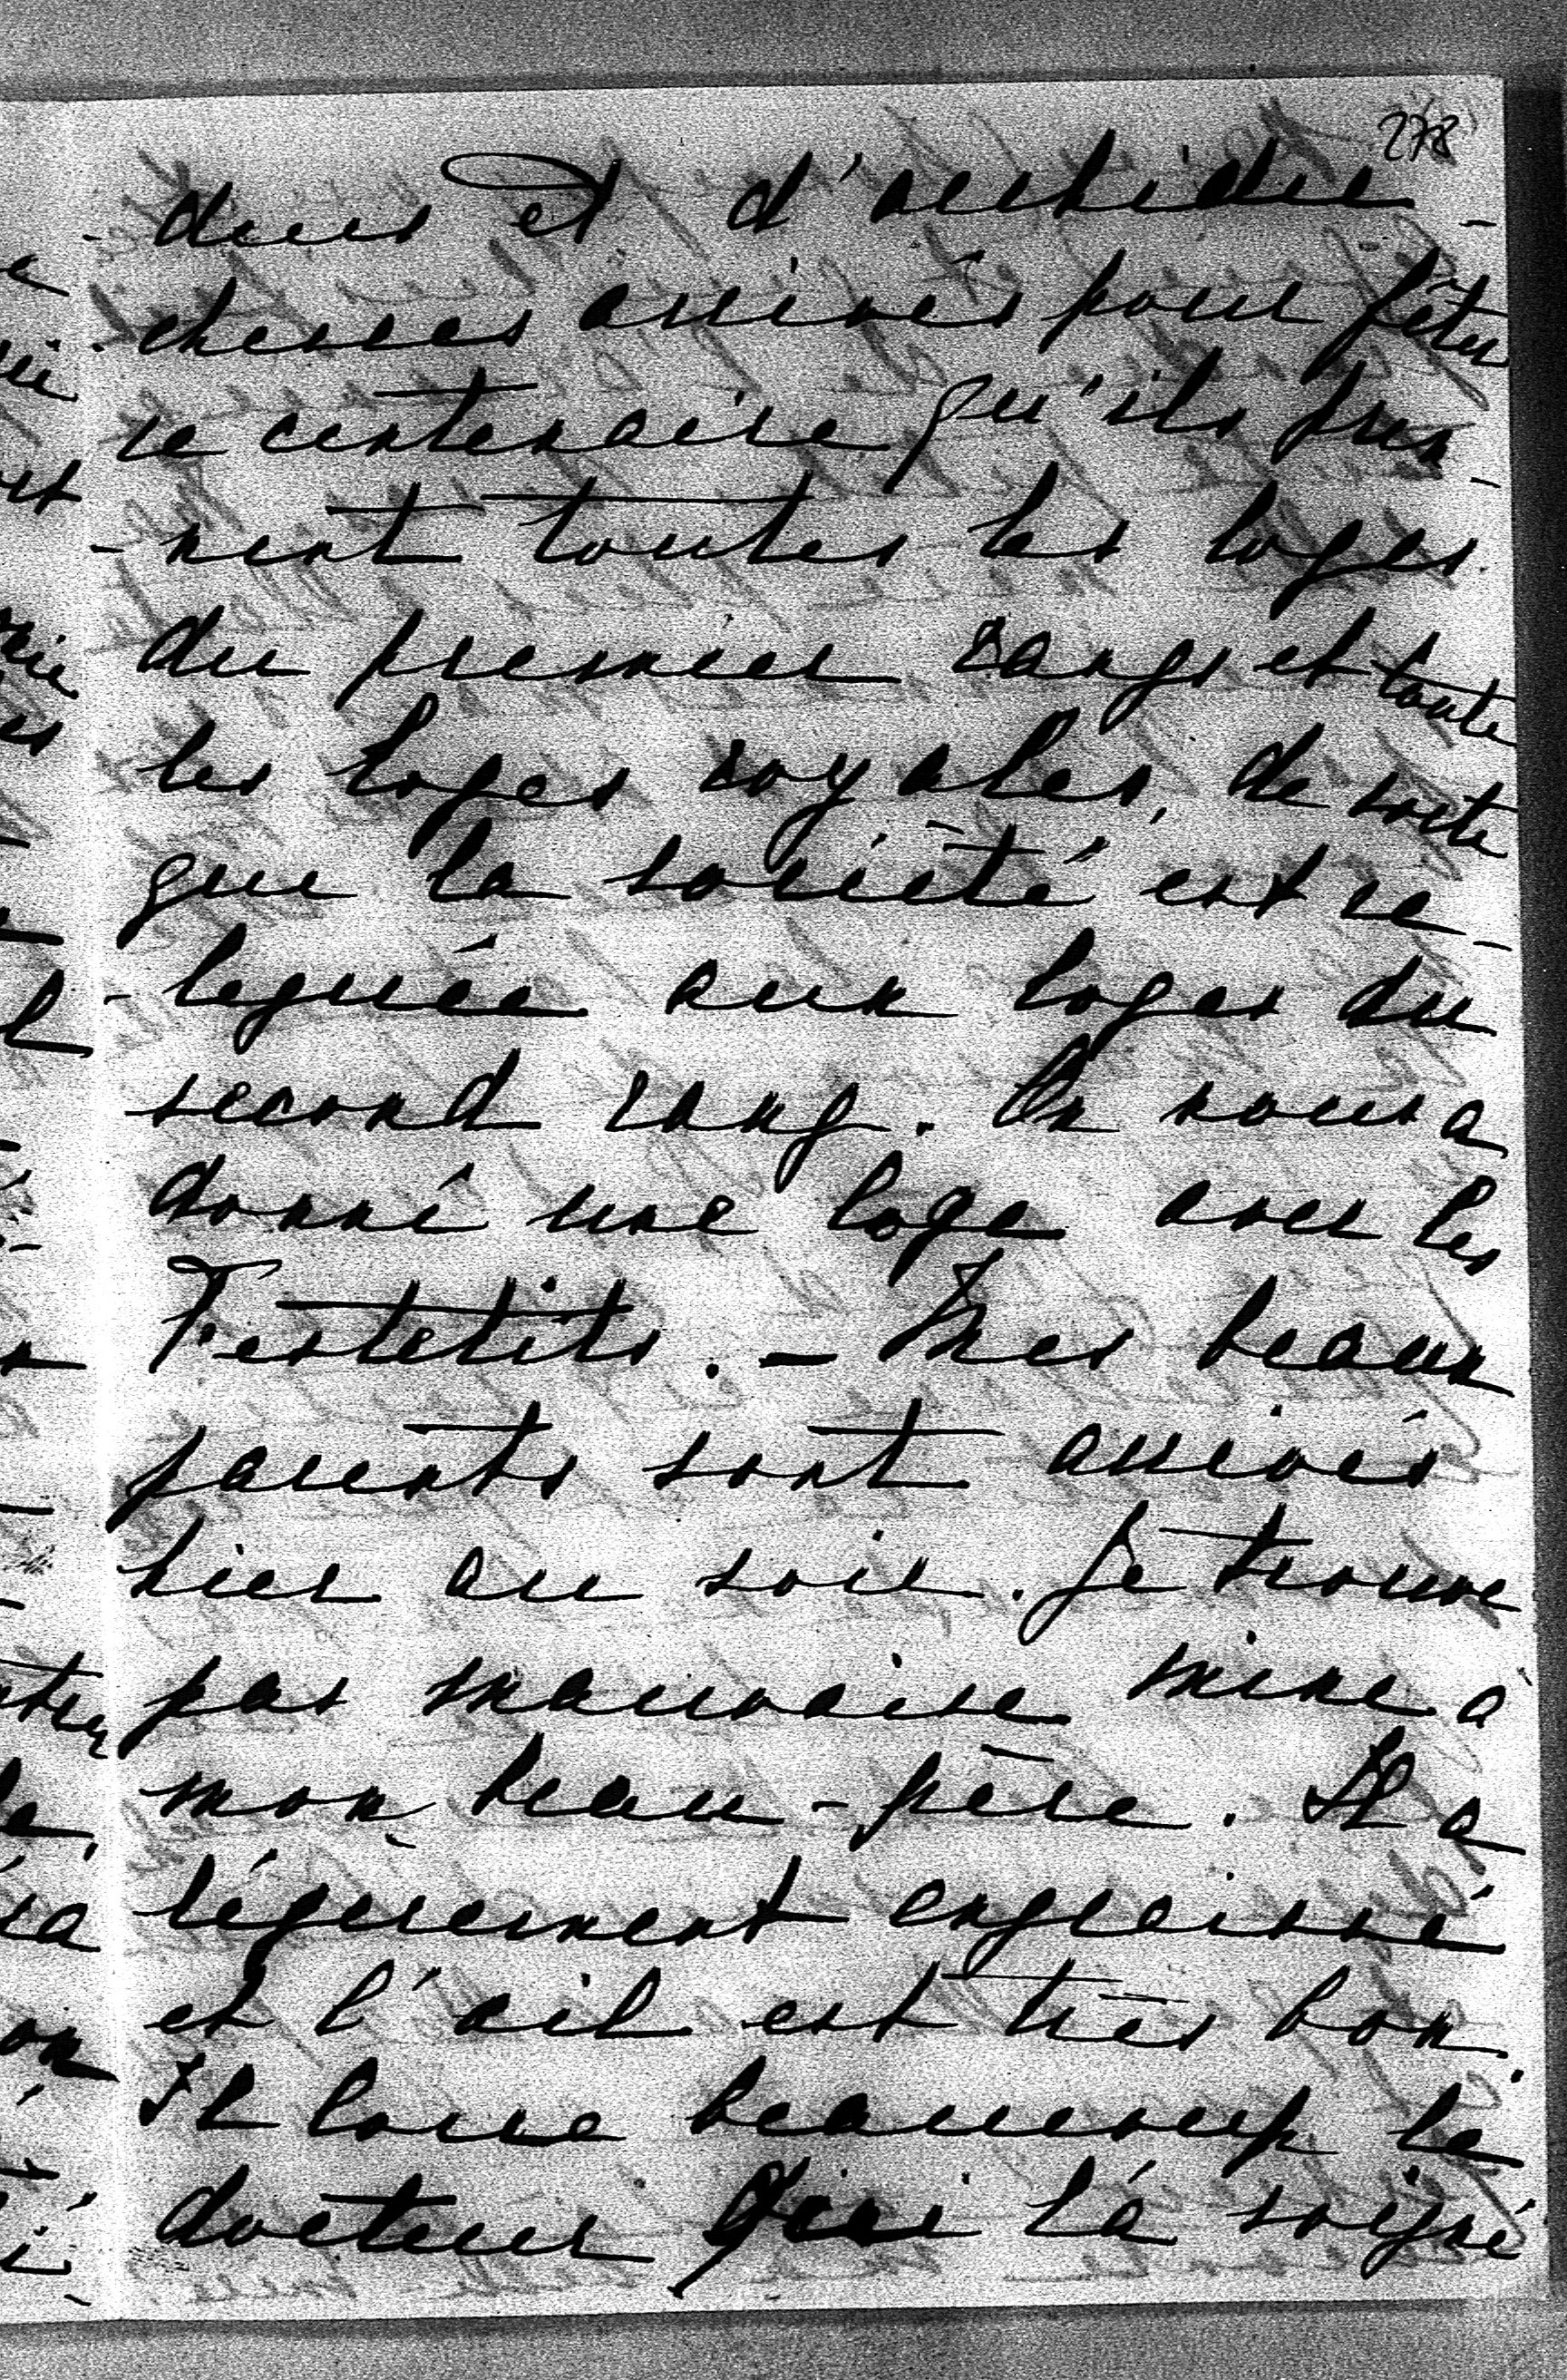 278
-ducs et d'archidu-
-chesses arrivés pour fêter
ce centenaire qu'ils pren-
-nent toutes les loges
du premier rangs et toute
les loges royales, de sorte
que la société est re-
-leguée aux loges du
second rang. On nous a
donné une loge avec les
Festetits. - Mes beaux
parents sont arrivés
hier au soir. Je trouve
pas mauvaise mine à
mon beau-père. Il a
légèrement engraissé
et l'œil est très bon.
Il loue beaucoup le
docteur qui l'a soigné